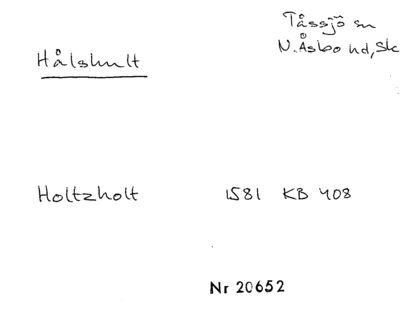 Tåssjö sn
Hålshult
N. Åsbo hd, Sk
Holtzholt 1581 KB 408
Nr 20652